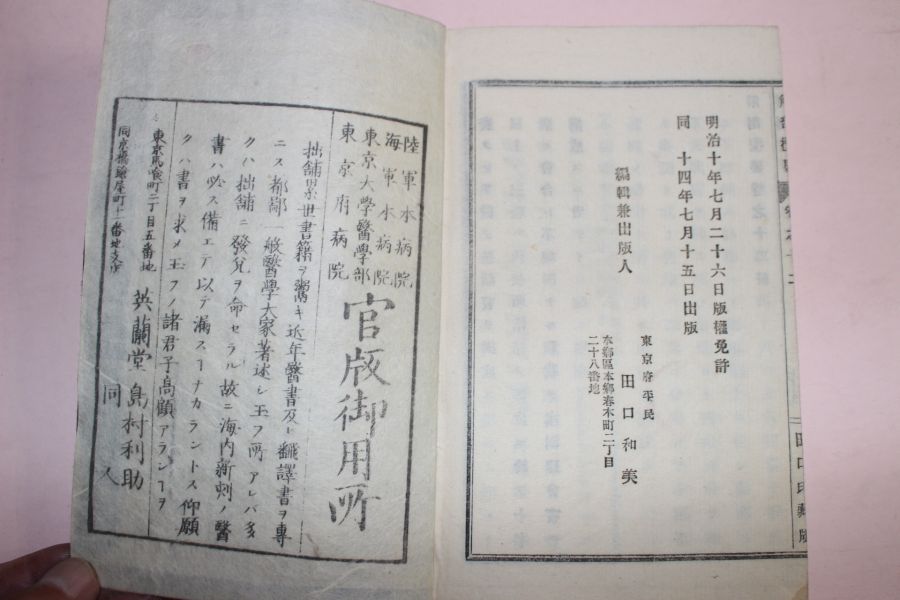 明治十年七月二十六日版權免許
同 十四年七月十五日出版
編輯兼出版人
東京府平民
田口和美
本鄕區本鄕春木町二丁目
二十八番地
田口氏藏版
陸軍本病院
海軍本病院
東京大學醫學部
東京府病院
官版御用所
拙舗累世書籍ヲ鬻キ近年醫書及ヒ飜譯書ヲ專
ニス都鄙一般醫學大家著述シ玉フ所アレバ多
クハ拙舗ニ發兌ヲ命セラル故ニ海内新刻ノ醫
書ハ必ス備エテ以テ漏スヿナカラントス仰願
クハ書ヲ求メ玉フノ諸君子髙顧アランヿヲ
東京馬喰町二丁目五番地
英蘭堂 島村利助
同京橋鎗屋町十一番地支店
同人